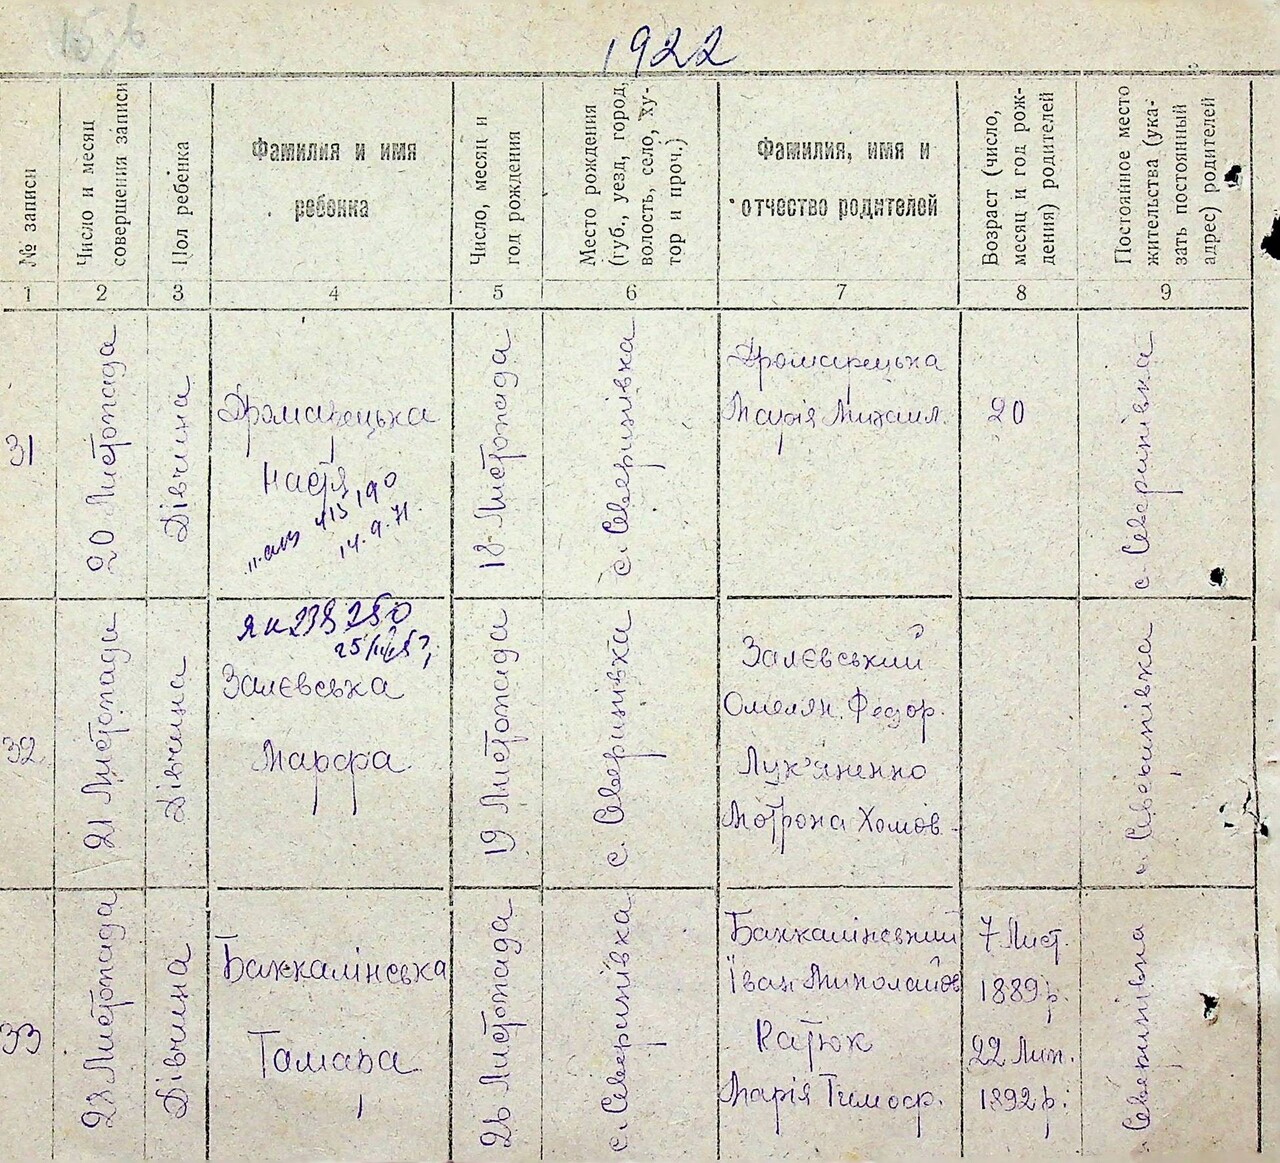 1922
№ записи
Число и месяц
совершения записи
Пол ребенка
Фамилия и имя
ребенка
Число, месяц и
год рождения
Место рождения
(губ., уезд, город,
волость, село, ху-
тор и проч.)
Фамилия, имя и
отчество родителей
Возраст (число,
месяц и год рож-
дения) родителей
Постоянное место
жительства (ука-
зать постоянный
адрес) родителей
1 2 3 4 5 6 7 8 9
31
20 Листопада
Дівчина
Громарецька
Настя
14.9.71.
18 Листопада
с. Северинівка
Громарецька
Марія Михаил.
20
с. Северинівка
32
21 Листопада
Дівчина
Залєвська
Марфа
19 Листопада
с. Северинівка
Залєвський
Омелян Федор.
Лук'яненко
Мотрона Хомов.
с. Северинівка
33
28 Листопада
Дівчина
Баккалінська
Тамара
26 Листопада
с. Северинівка
Баккалінський
Іван Миколайов
Ратюк
Марія Тимоф.
7 Лист.
1889 р.
22 Лип.
1892 р.
с. Северинівка